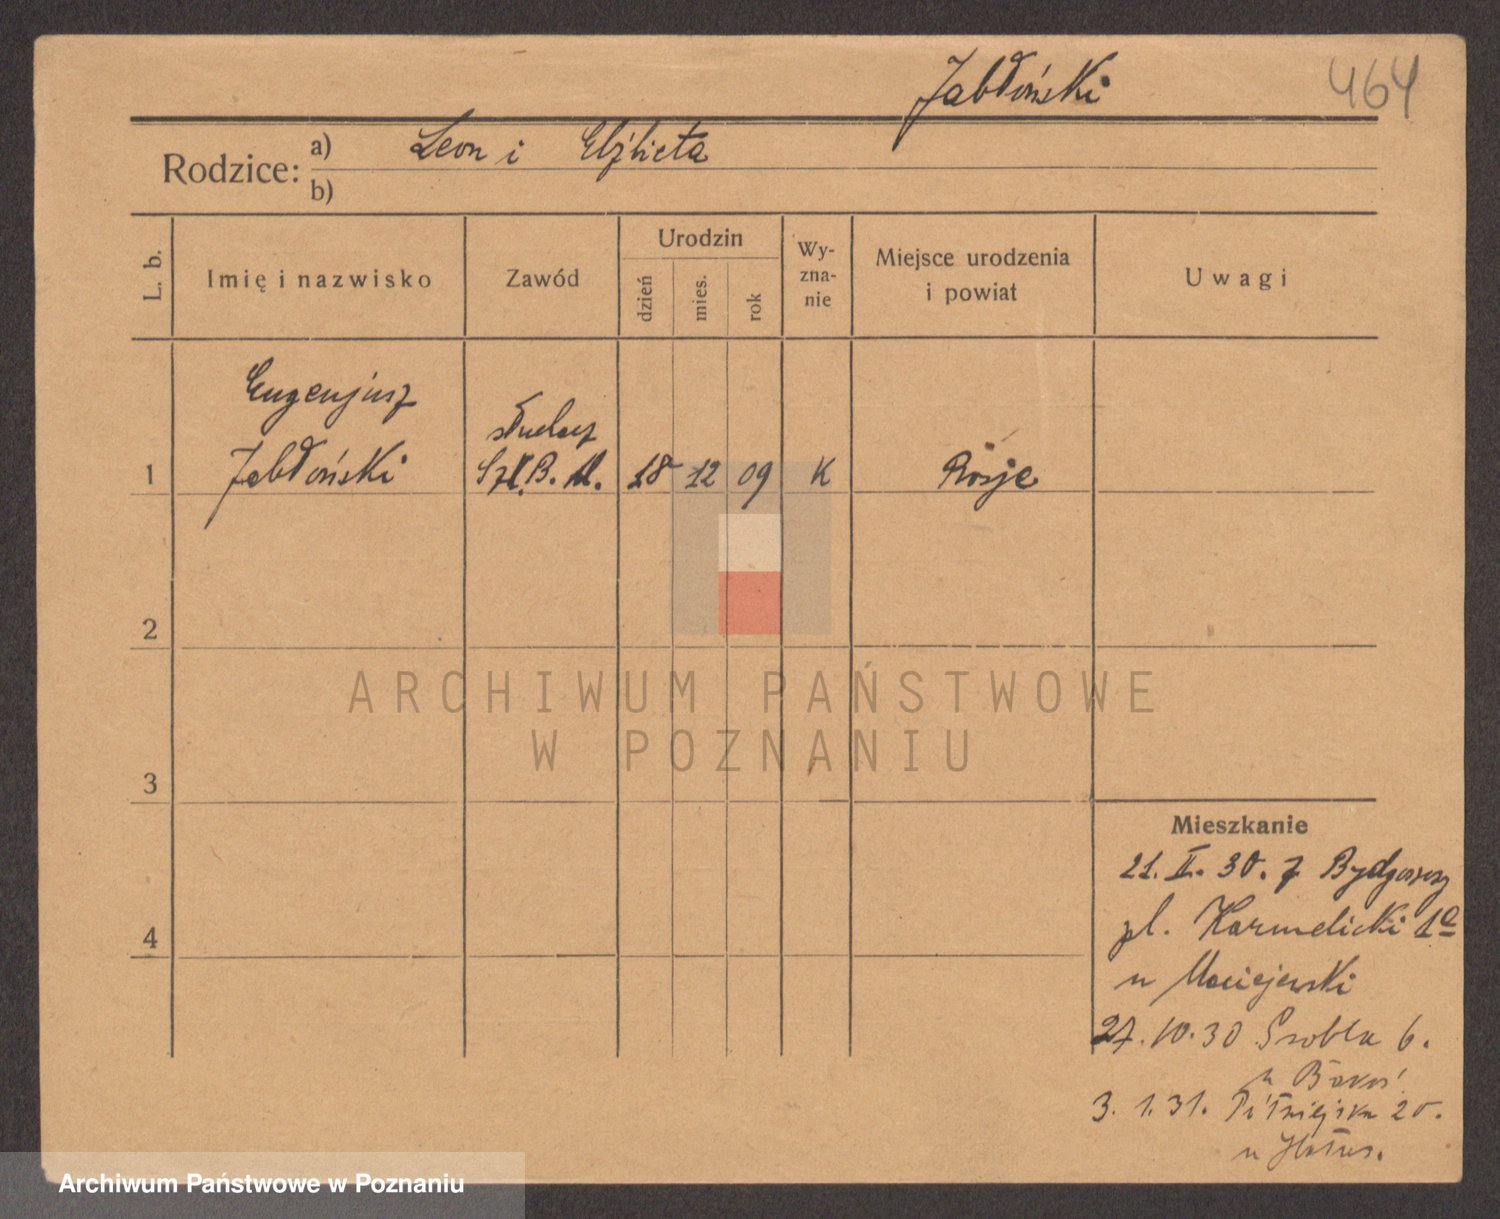 Jabłoński 464
Rodzice: a) Leon i Elżbieta
b)
L. b.
Imię i nazwisko
Zawód
Urodzin
dzień
mies.
rok
Wy-
zna-
nie
Miejsce urodzenia
i powiat
Uwagi
Eugenjusz
słuchacz
1 Jabłoński Szk. B. M. 18 12 09 K Rosje
2
3
4
Mieszkanie
21. II. 30. z Bydgoszcz
pl. Karmelicki 1a
u Maciejewski
27. 10. 30 Grobla 6.
u
3. 1. 31. 20.
u
ARCHIWUM PAŃSTWOWE
W POZNANIU
Archiwum Państwowe w Poznaniu